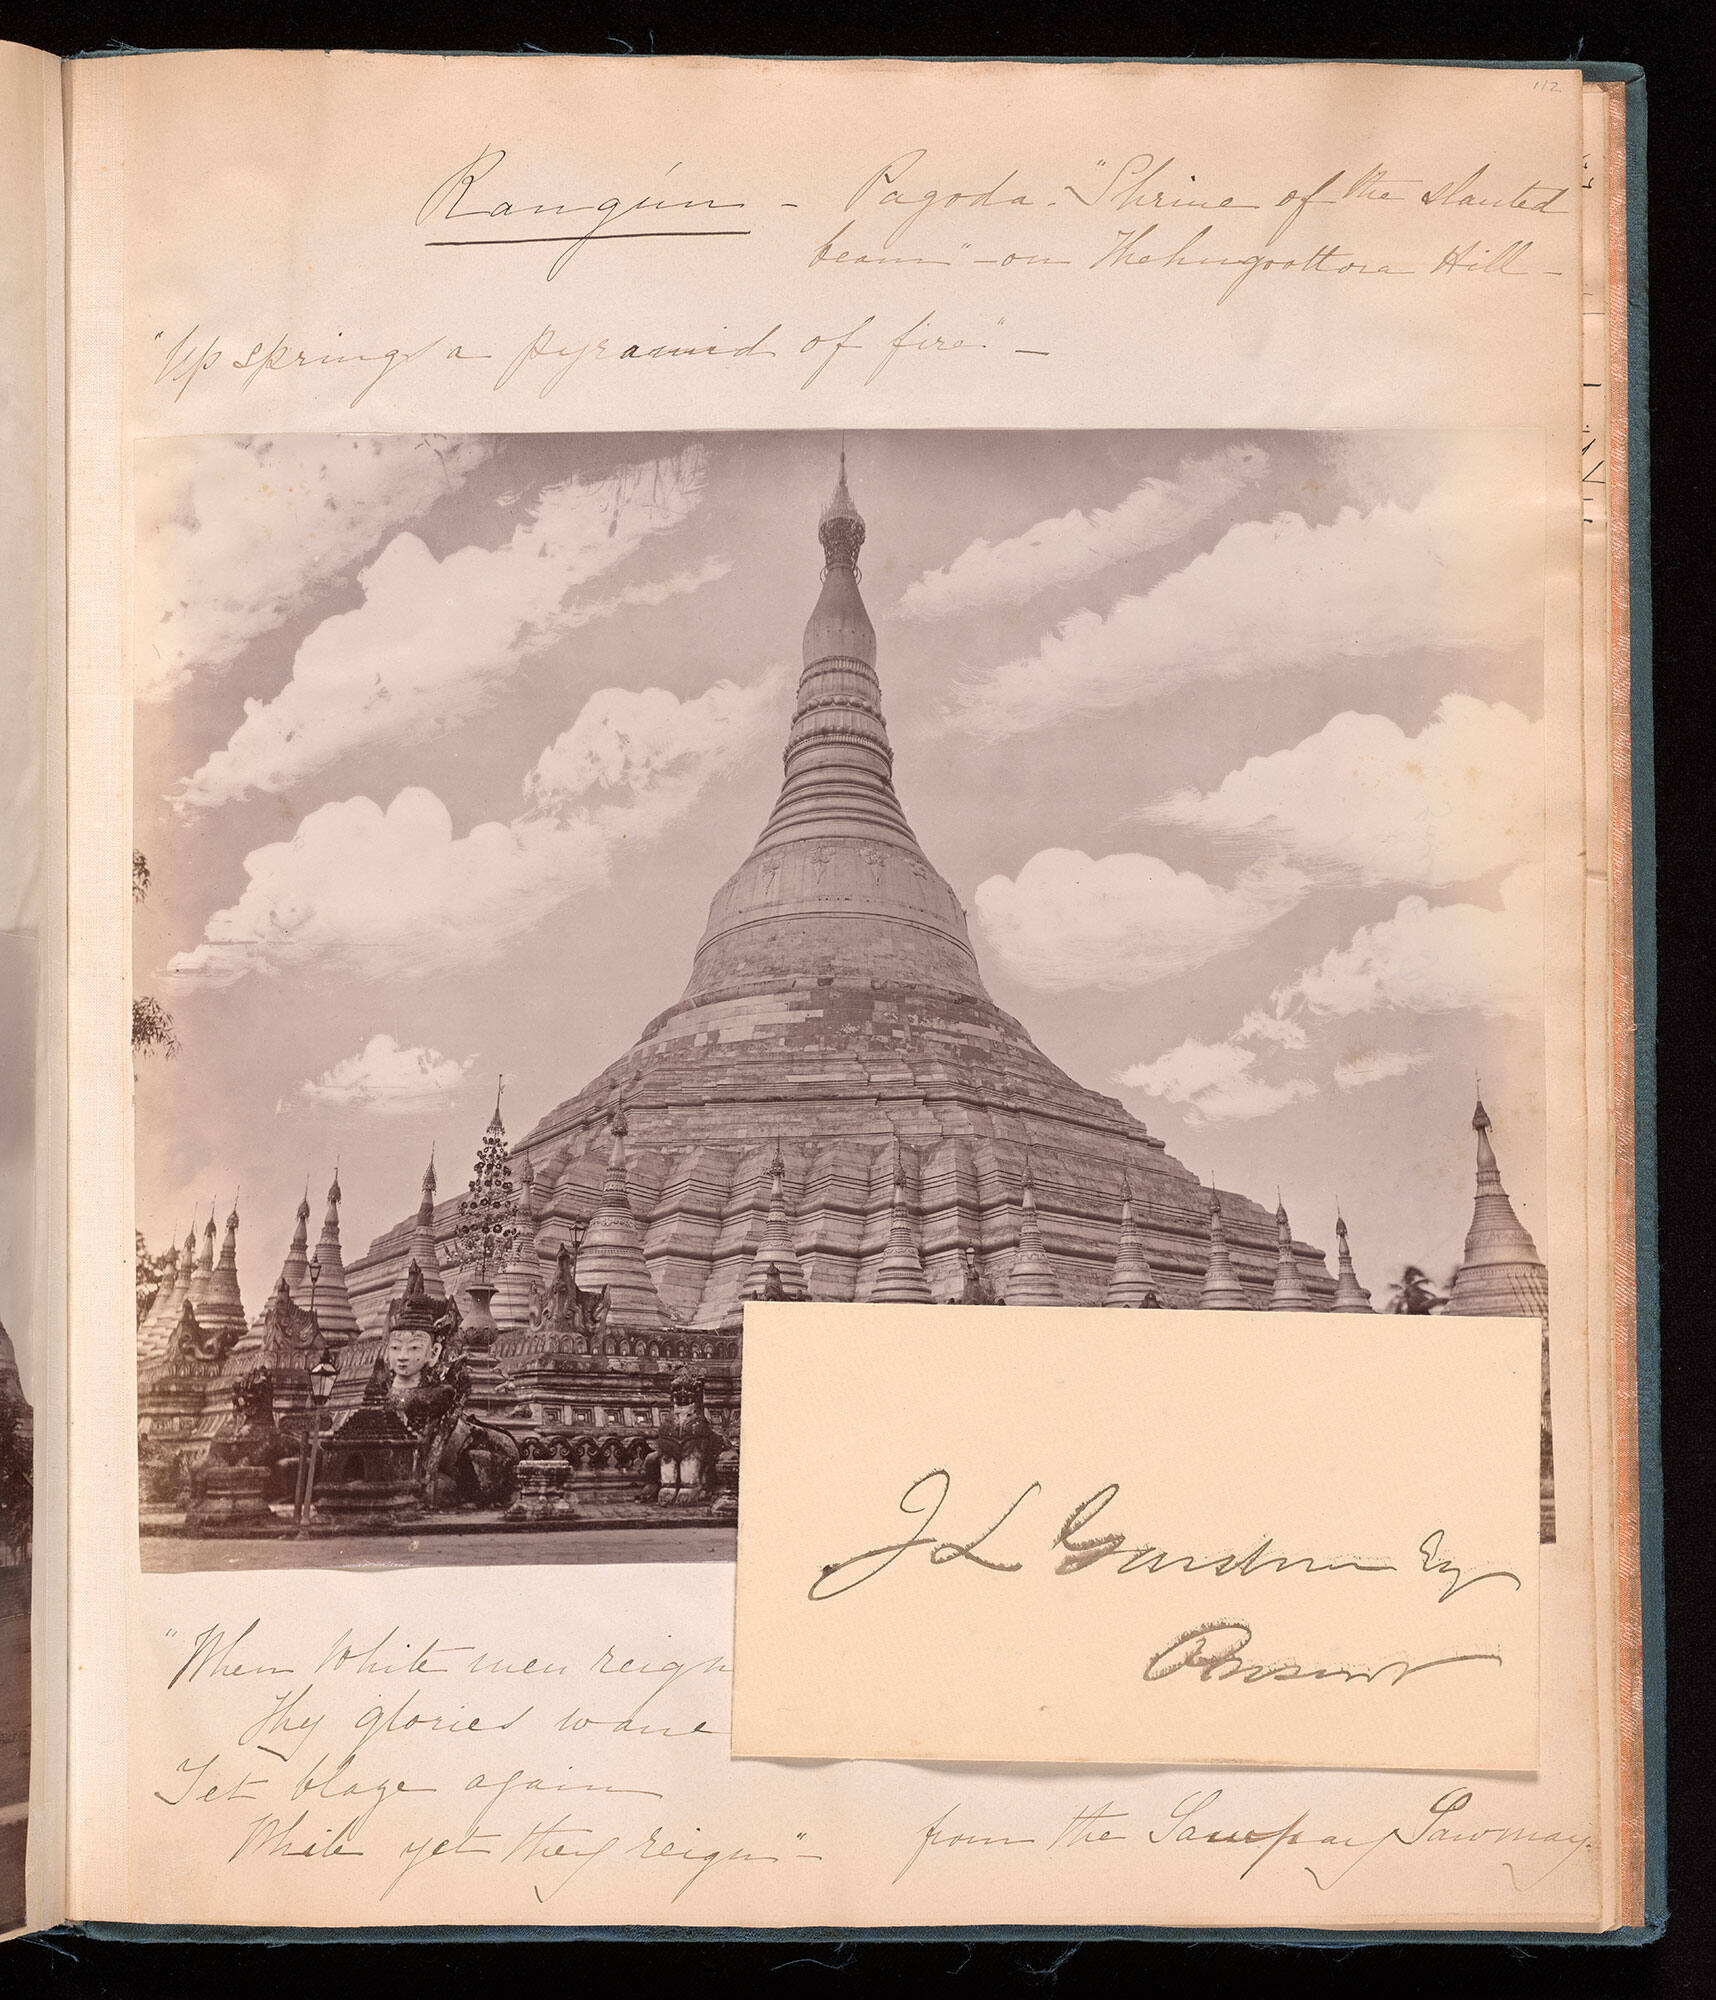 112
Rangún - Pagoda. "Shrine of the slanted
beam" - on Thehngoottora Hill -
"Up springs a pyramid of fire" -
J L Gardner Esq
Present
"When White men reign
Thy glories wane
Yet blaze again
While yet they reign" -
from the Sawpay Sawmay.